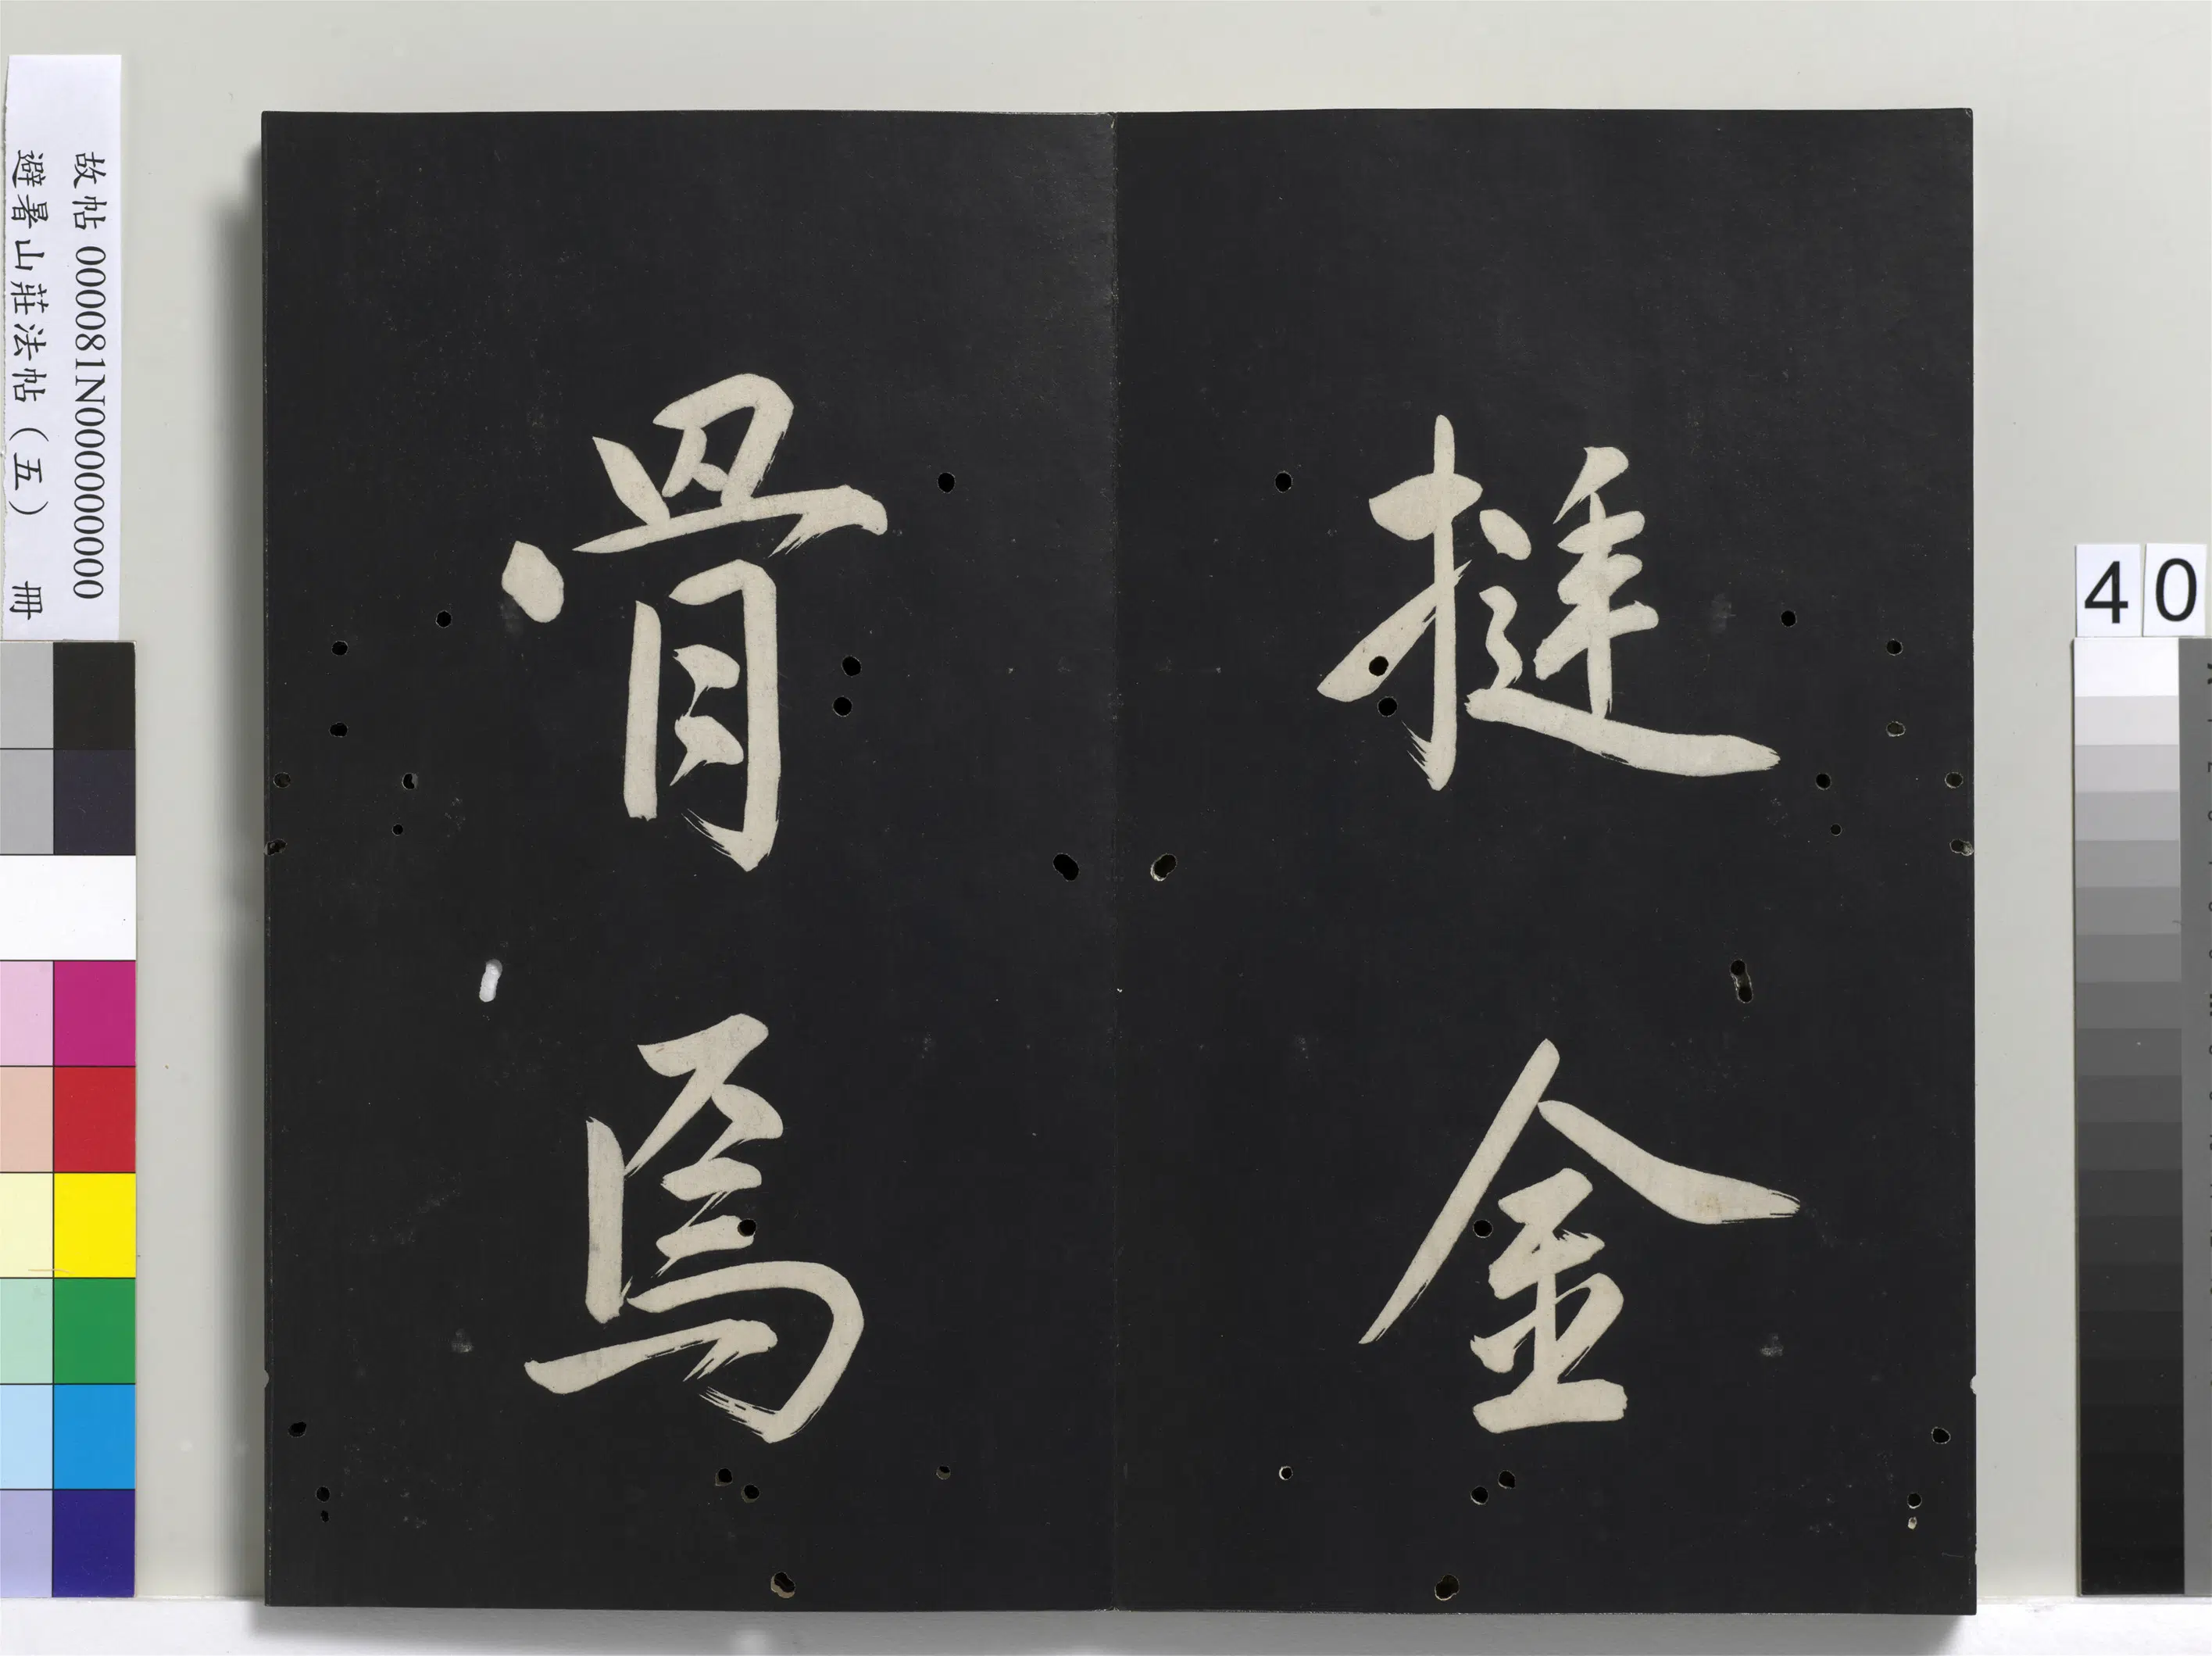 挺金
骨焉
故帖 000081N000000000
避暑山莊法帖（五） 冊
40